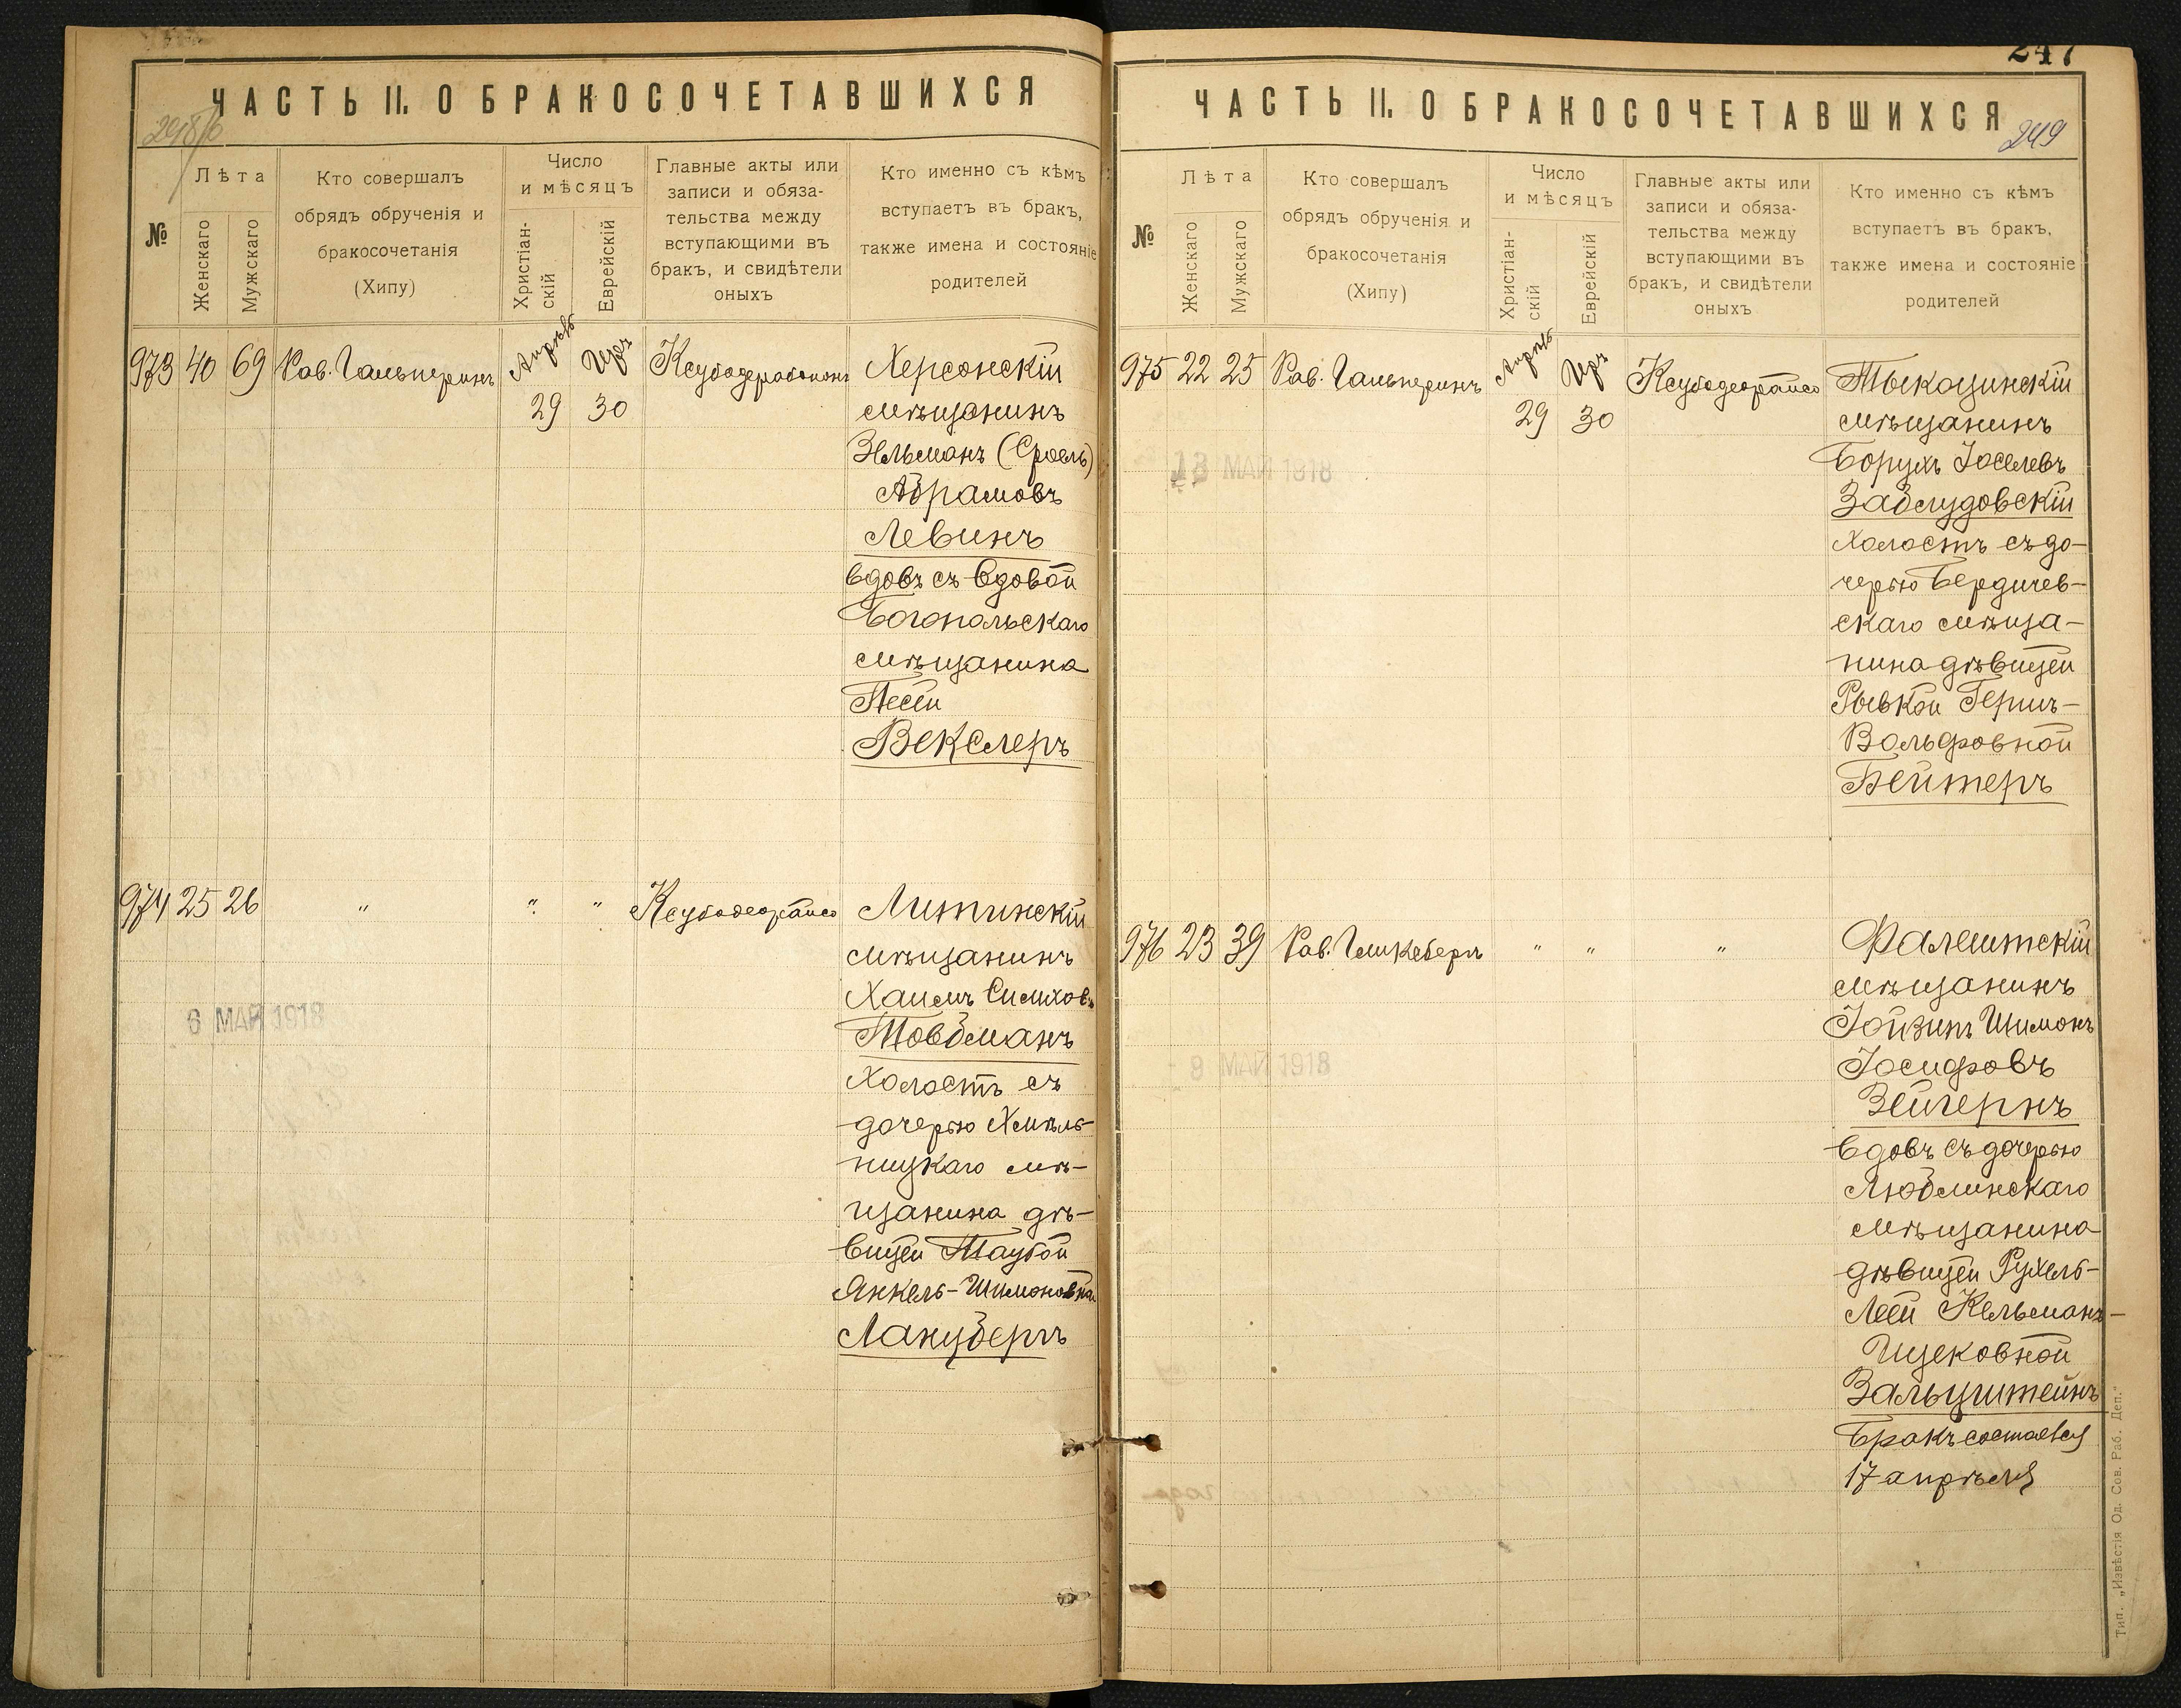 ЧАСТЬ II. О БРАКОСОЧЕТАВШИХСЯ
№
Лѣта
Женскаго
Мужскаго
Кто совершалъ
обрядъ обрученія и
бракосочетанія
(Хипу)
Число
и мѣсяцъ
Христіан-
скій
Еврейскій
Главные акты или
записи и обяза-
тельства между
вступающими въ
бракъ, и свидѣтели
оныхъ
Кто именно съ кѣмъ
вступаетъ въ бракъ,
также имена и состояніе
родителей
973 40 69 Рав. Гальперинъ Апрѣль Иръ
29 30
Херсонскій
мѣщанинъ
Зельманъ (Сроель)
Абрамовъ
Левинъ
вдовъ съ вдовой
Богопольскаго
мѣщанина
Песей
Векслеръ
974 25 26 " " " Ксубодеорайсо
Литинскій
мѣщанинъ
Хаимъ Симхов.
Товбманъ
холостъ съ
дочерью Хмѣль-
ницкаго мѣ-
щанина дѣ-
вицей Таубой
Янкель-Шимоновной
Ланцбергъ
6 МАЯ 1918
247
ЧАСТЬ II. О БРАКОСОЧЕТАВШИХСЯ
249
№
Лѣта
Женскаго
Мужскаго
Кто совершалъ
обрядъ обрученія и
бракосочетанія
(Хипу)
Число
и мѣсяцъ
Христіан-
скій
Еврейскій
Главные акты или
записи и обяза-
тельства между
вступающими въ
бракъ, и свидѣтели
оныхъ
Кто именно съ кѣмъ
вступаетъ въ бракъ,
также имена и состояніе
родителей
975 22 25 Рав. Гальперинъ Апрѣль Иръ Ксубодеорайсо
29 30
Тыкоцинскій
мѣщанинъ
Борухъ Іоселевъ
Заблудовскій
холостъ съ до-
черью Бердичев-
скаго мѣща-
нина дѣвицей
Рывкой Гершъ-
Вольфовной
Бейтеръ
13 МАЙ 1918
976 23 39 Рав. Гликсбергъ " " "
Фалештскій
мѣщанинъ
Іойзипъ Шимонъ
Іосифовъ
Зейгернъ
вдовъ съ дочерью
Люблинскаго
мѣщанина
дѣвицей Рухель-
Леей Кельманъ-
Ицековной
Зальцштейнъ
Бракъ состоялся
17 апрѣля
8 МАЙ 1918
Тип. „Извѣстія Од. Сов. Раб. Деп."